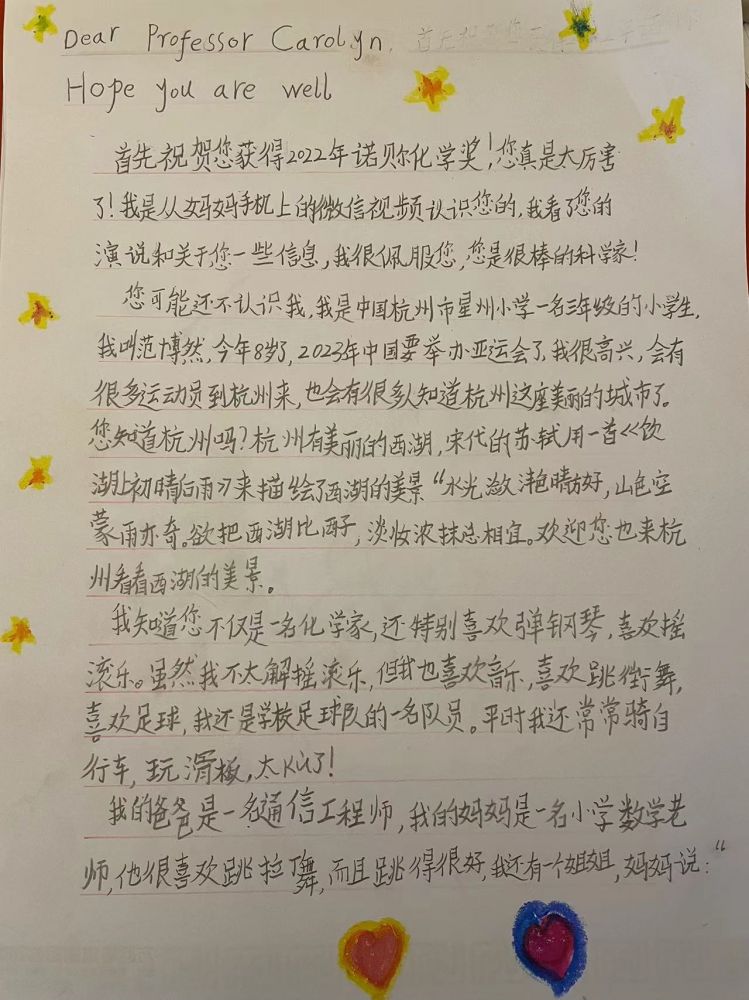 Dear Professor Carolyn.
Hope you are well
首先祝贺您获得2022年诺贝尔化学奖！您真是太厉害
了！我是从妈妈手机上的微信视频认识您的，我看了您的
演说和关于您一些信息，我很佩服您，您是很棒的科学家！
您可能还不认识我，我是中国杭州市星洲小学一名三年级的小学生，
我叫范博然，今年8岁了，2023年中国要举办亚运会了，我很高兴，会有
很多运动员到杭州来，也会有很多人知道杭州这座美丽的城市了。
您知道杭州吗？杭州有美丽的西湖，宋代的苏轼用一首《饮
湖上初晴后雨》来描绘了西湖的美景“水光潋滟晴方好，山色空
蒙雨亦奇。欲把西湖比西子，淡妆浓抹总相宜。欢迎您也来杭
州看看西湖的美景。
我知道您不仅是一名化学家，还特别喜欢弹钢琴，喜欢摇
滚乐。虽然我不太解摇滚乐，但我也喜欢音乐，喜欢跳街舞，
喜欢足球，我还是学校足球队的一名队员。平时我还常常骑自
行车，玩滑板，太kù了！
我的爸爸是一名通信工程师，我的妈妈是一名小学数学老
师，他很喜欢跳拉丁舞，而且跳得很好，我还有一个姐姐，妈妈说：“